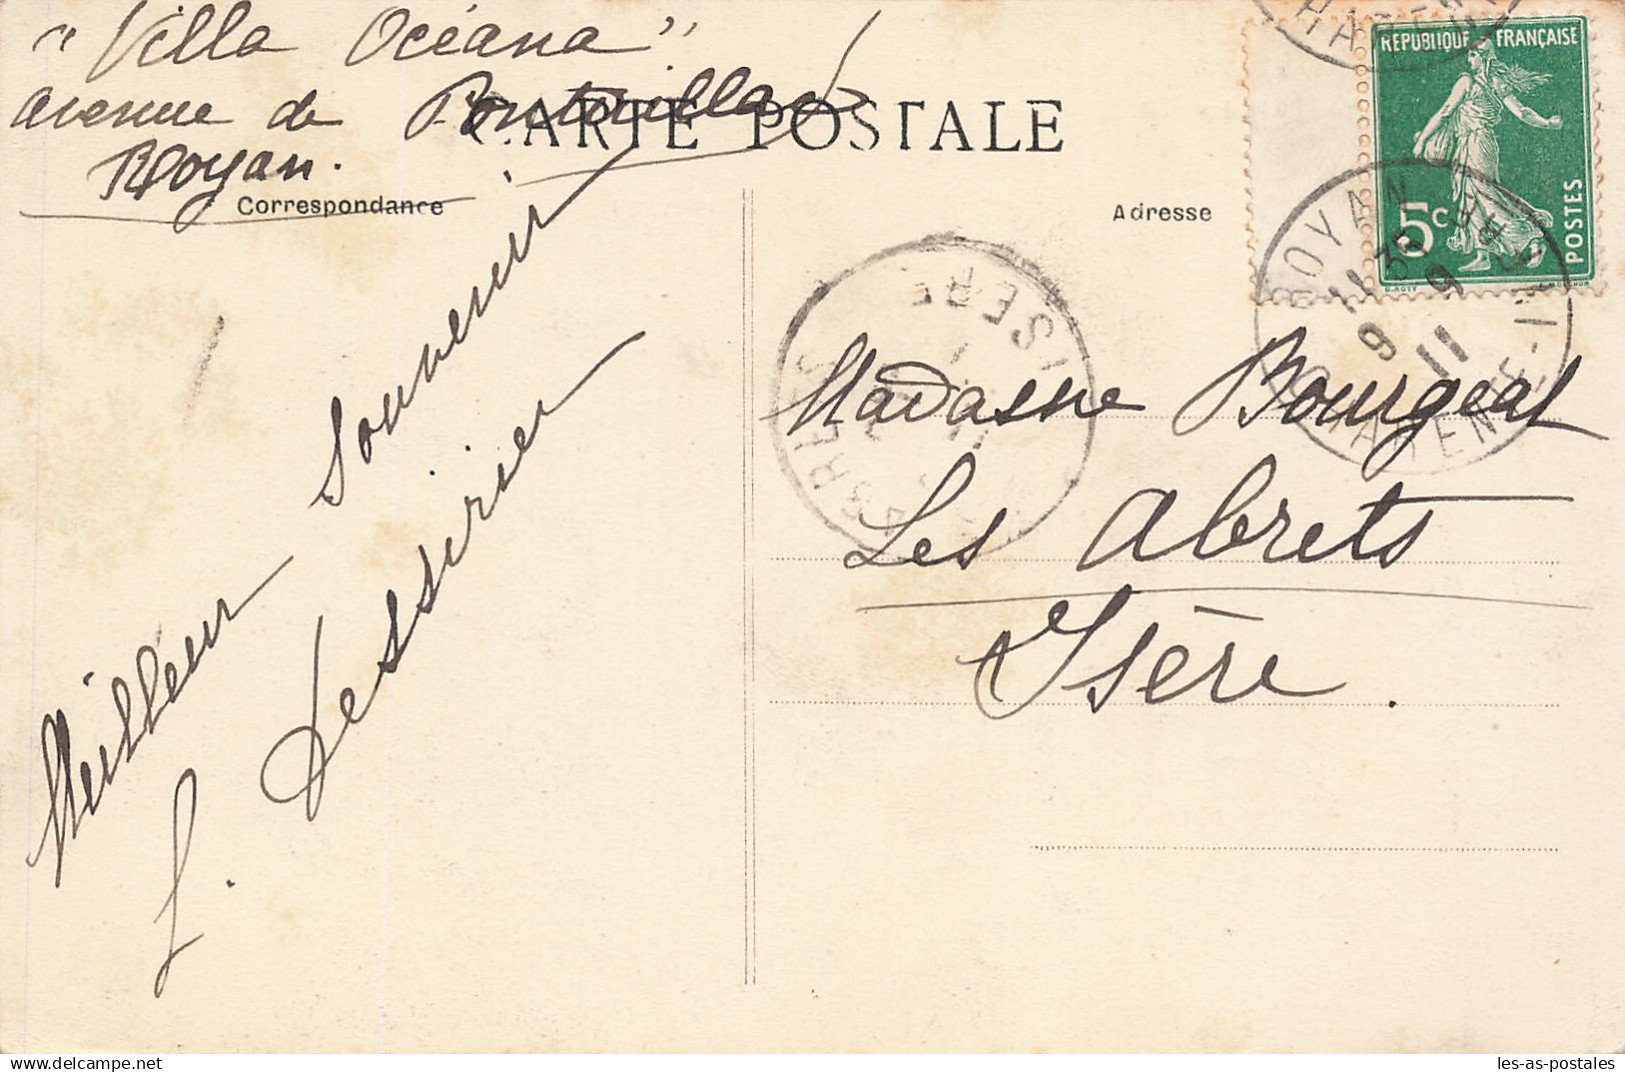 "Villa Océana"
avenue de Pontaillac
Royan.
CARTE POSTALE
Correspondance
Adresse
RÉPUBLIQUE FRANÇAISE
5c
POSTES
ROYAN
11 35
9 9
11
ISÈRE
Meilleur Souvenir
L. Tessirier
Madame Bourgeat
Les Abrets
Isère.
delcampe.net
les-as-postales